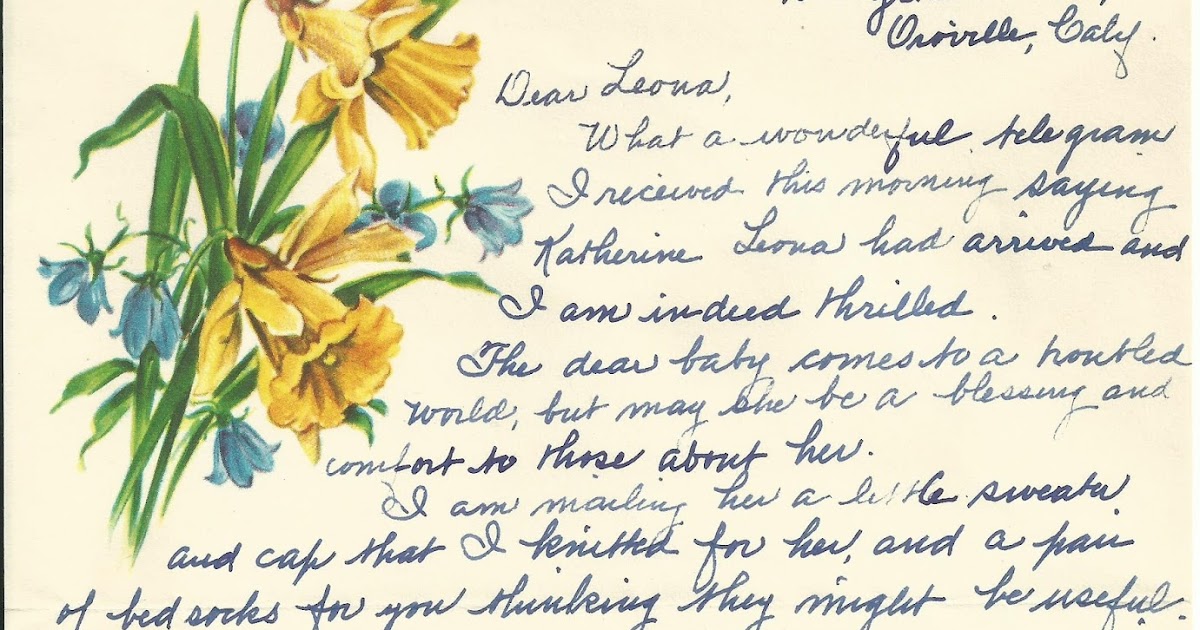 Oroville, Calif.
Dear Leona,
What a wonderful telegram
I received this morning saying
Katherine Leona had arrived and
I am indeed thrilled.
The dear baby comes to a troubled
world, but may she be a blessing and
comfort to those about her.
I am mailing her a little sweater
and cap that I knitted for her, and a pair
of bed socks for you thinking they might be useful.